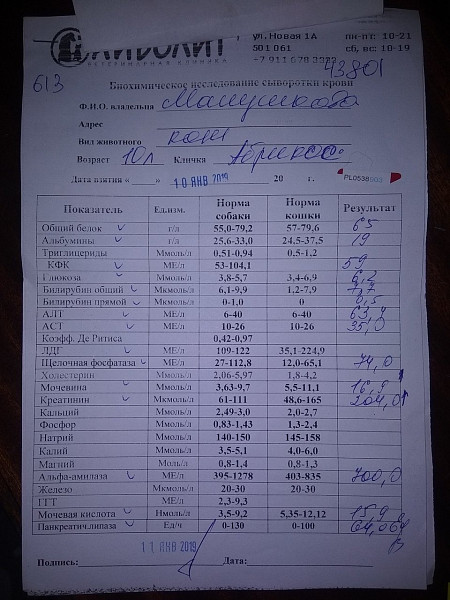 АЙБОЛИТ
ВЕТЕРИНАРНАЯ КЛИНИКА
ул.Новая 1А
501 061
+7 911 678
пн-пт: 10-21
сб, вс: 10-19
613
43801
Биохимическое исследование сыворотки крови
Ф.И.О. владельца
Адрес
Вид животного кот
Возраст 10л Кличка Абрикос
Дата взятия «___» 10 ЯНВ 2019 20 г. PL0538
Показатель Ед.изм. Норма собаки Норма кошки Результат
Общий белок г/л 55,0-79,2 57-79,6 65
Альбумины г/л 25,6-33,0 24,5-37,5 19
Триглицериды Ммоль/л 0,51-0,94 0,5-1,2
КФК МЕ/л 53-104,1 59
Глюкоза Ммоль/л 3,8-5,7 3,4-6,9 6,2
Билирубин общий Мкмоль/л 6,1-9,9 1,2-7,9 7,7
Билирубин прямой Мкмоль/л 0-1,0 0 0,5
АЛТ МЕ/л 6-40 6-40 63,4
АСТ МЕ/л 10-26 10-26 35,0
Коэфф. Де Ритиса 0,42-0,97
ЛДГ МЕ/л 109-122 35,1-224,9
Щелочная фосфатаза МЕ/л 27-112,8 12,0-65,1 74,0
Холестерин Ммоль/л 2,06-5,97 1,8-4,2
Мочевина Ммоль/л 3,63-9,7 5,5-11,1 16,9
Креатинин Мкмоль/л 61-111 48,6-165 204,0
Кальций Ммоль/л 2,49-3,0 2,0-2,7
Фосфор Ммоль/л 0,83-1,43 1,3-2,4
Натрий Ммоль/л 140-150 145-158
Калий Ммоль/л 3,5-5,1 4,0-6,0
Магний Моль/л 0,8-1,4 0,8-1,3
Альфа-амилаза МЕ/л 395-1278 403-835 700,0
Железо Мкмоль/л 20-30 20-30
ГГТ МЕ/л 2,3-9,3
Мочевая кислота Нмоль/л 3,5-9,2 5,35-12,12 15,9
Панкреатич.липаза Ед/ч 0-130 0-100
11 ЯНВ 2019
Подпись: Дата: